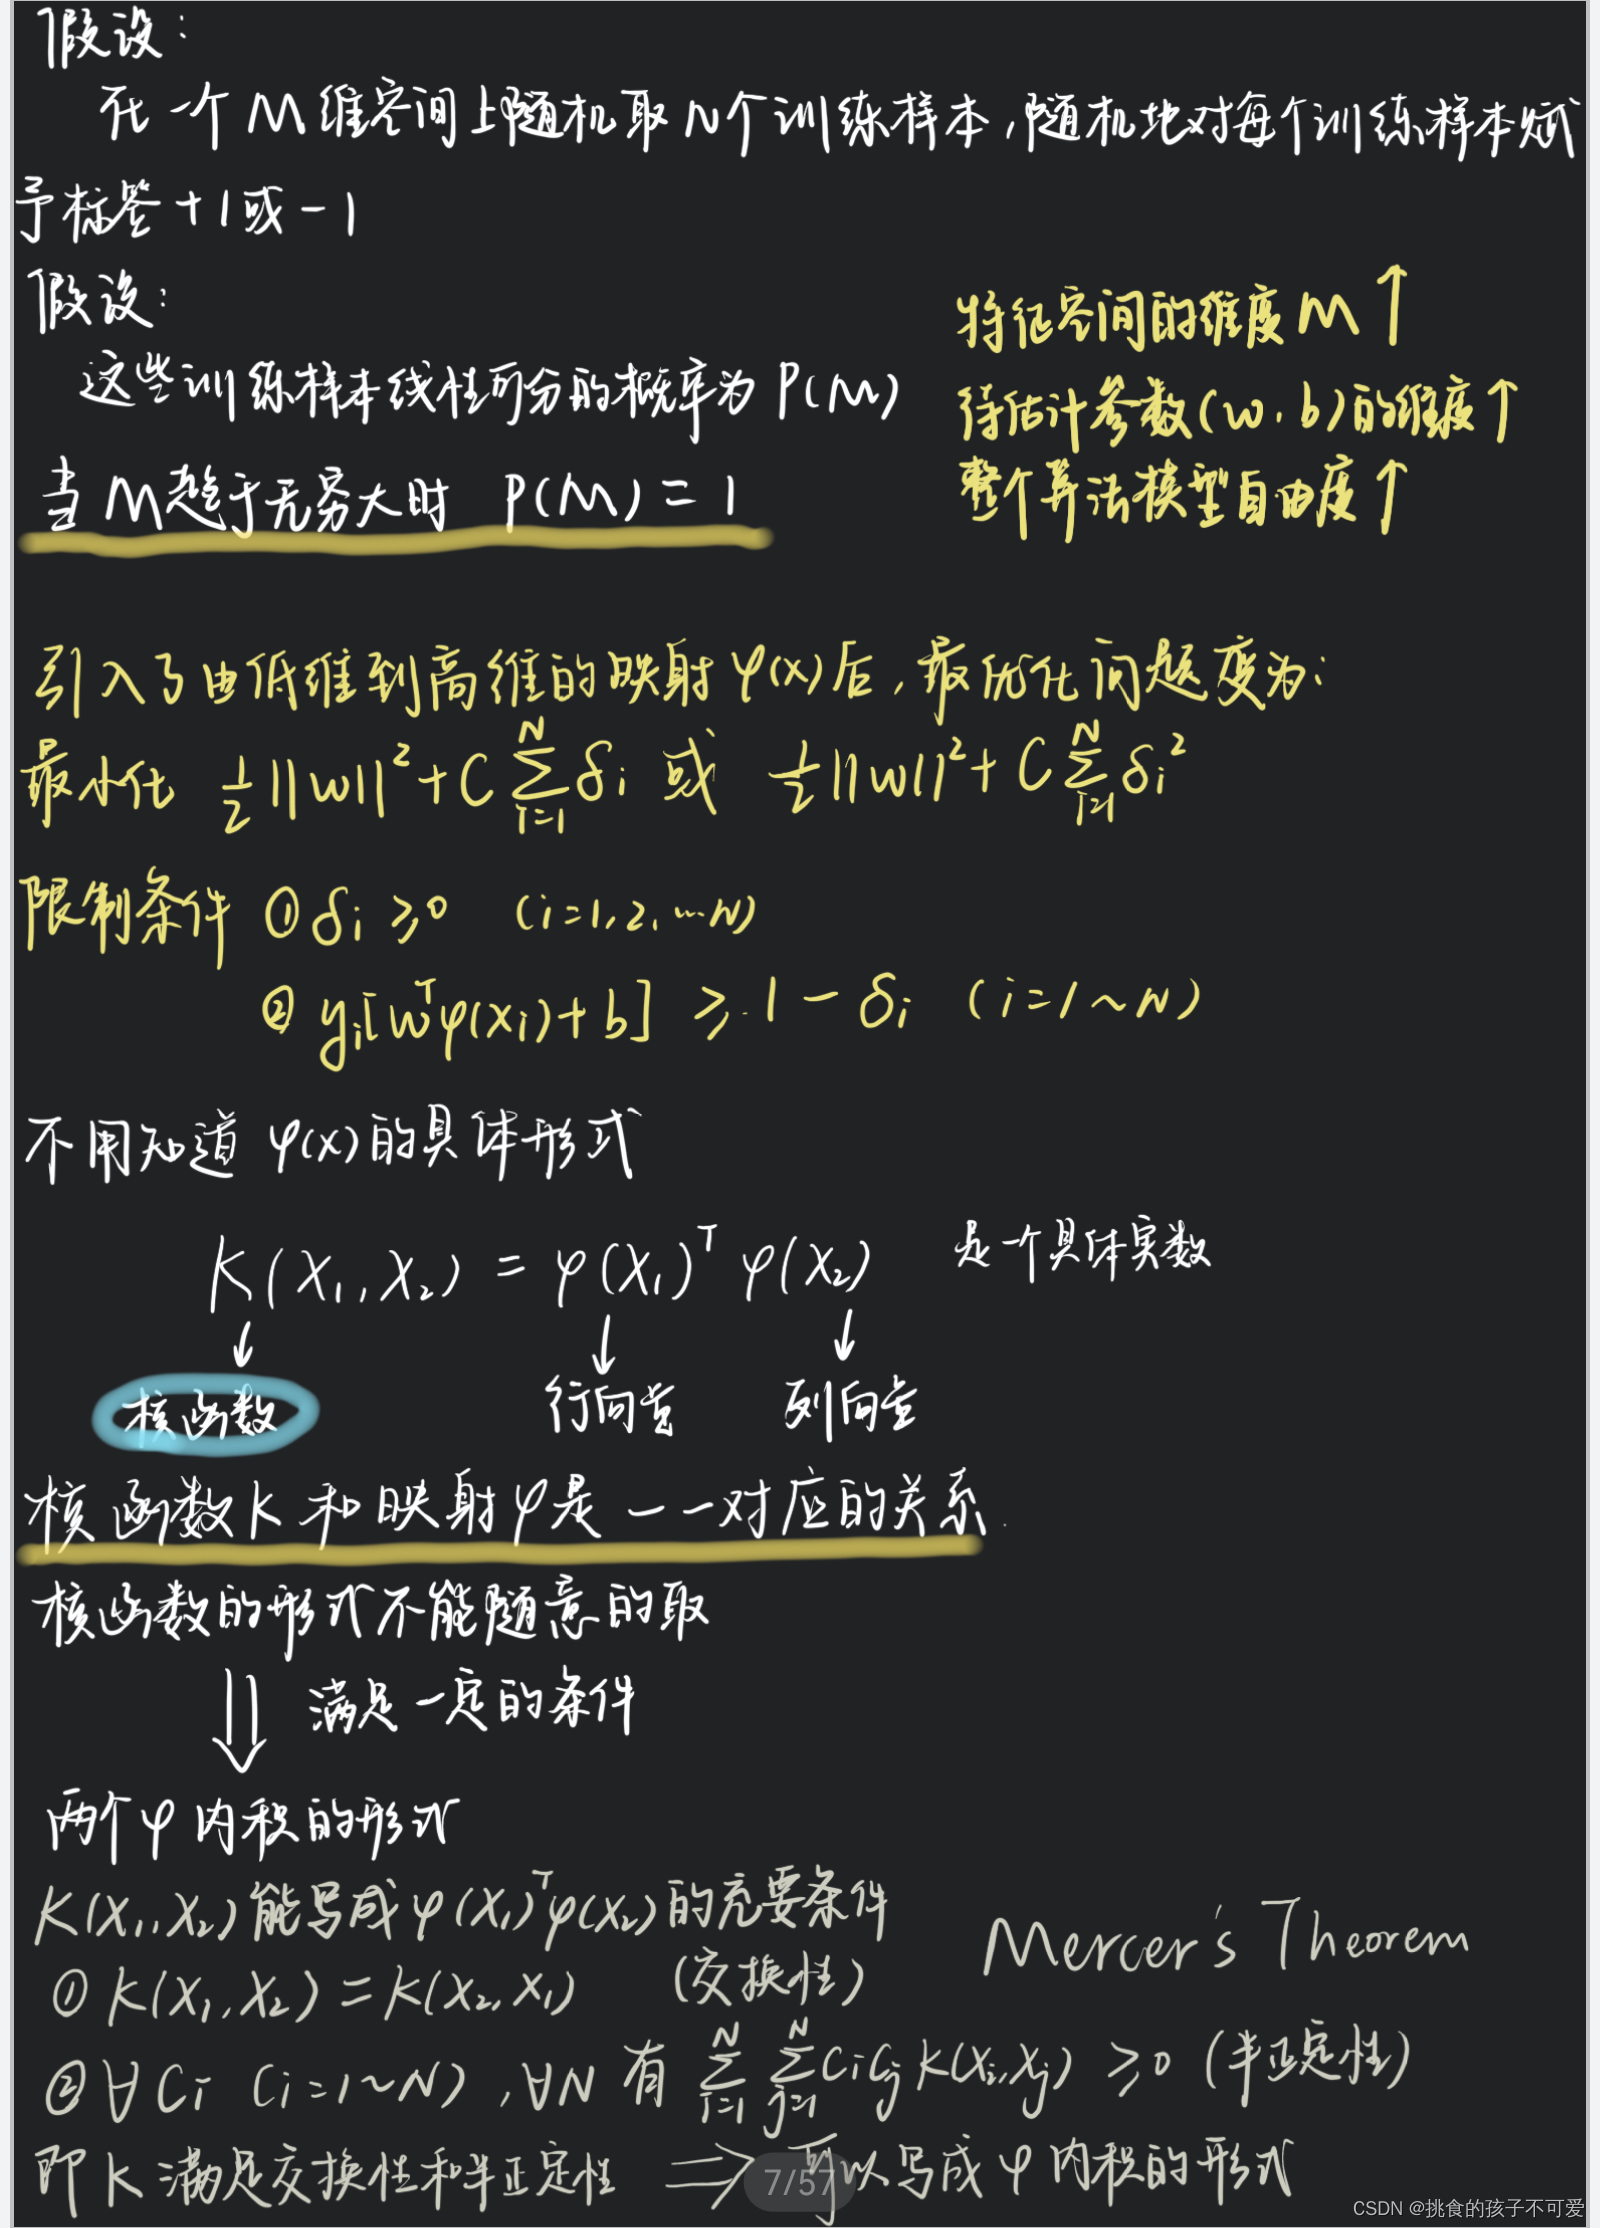 假设:
在一个M维空间上随机取N个训练样本,随机地对每个训练样本赋
予标签+1或-1
假设:
这些训练样本线性可分的概率为P(M)
当M趋于无穷大时 P(M)=1
特征空间的维度M↑
待估计参数(w,b)的维度↑
整个算法模型自由度↑
引入了由低维到高维的映射φ(x)后,最优化问题变为:
最小化 ½||w||²+C∑ᵢ₌₁ᴺδi 或 ½||w||²+C∑ᵢ₌₁ᴺδi²
限制条件 ①δi≥0 (i=1,2,…N)
②yi[wᵀφ(xi)+b]≥1-δi (i=1~N)
不用知道φ(x)的具体形式
K(X₁,X₂)=φ(X₁)ᵀφ(X₂) 是一个具体实数
↓ ↓ ↓
核函数 行向量 列向量
核函数K和映射φ是一一对应的关系.
核函数的形式不能随意的取
⇓ 满足一定的条件
两个φ内积的形式
K(X₁,X₂)能写成φ(X₁)ᵀφ(X₂)的充要条件
Mercer's Theorem
①K(X₁,X₂)=K(X₂,X₁) (交换性)
②∀Ci (i=1~N),∀N 有 ∑ᵢ₌₁ᴺ∑ⱼ₌₁ᴺCiCjK(Xi,Xj)≥0 (半正定性)
即K满足交换性和半正定性 ⇒ 可以写成φ内积的形式
7/57
CSDN @挑食的孩子不可爱